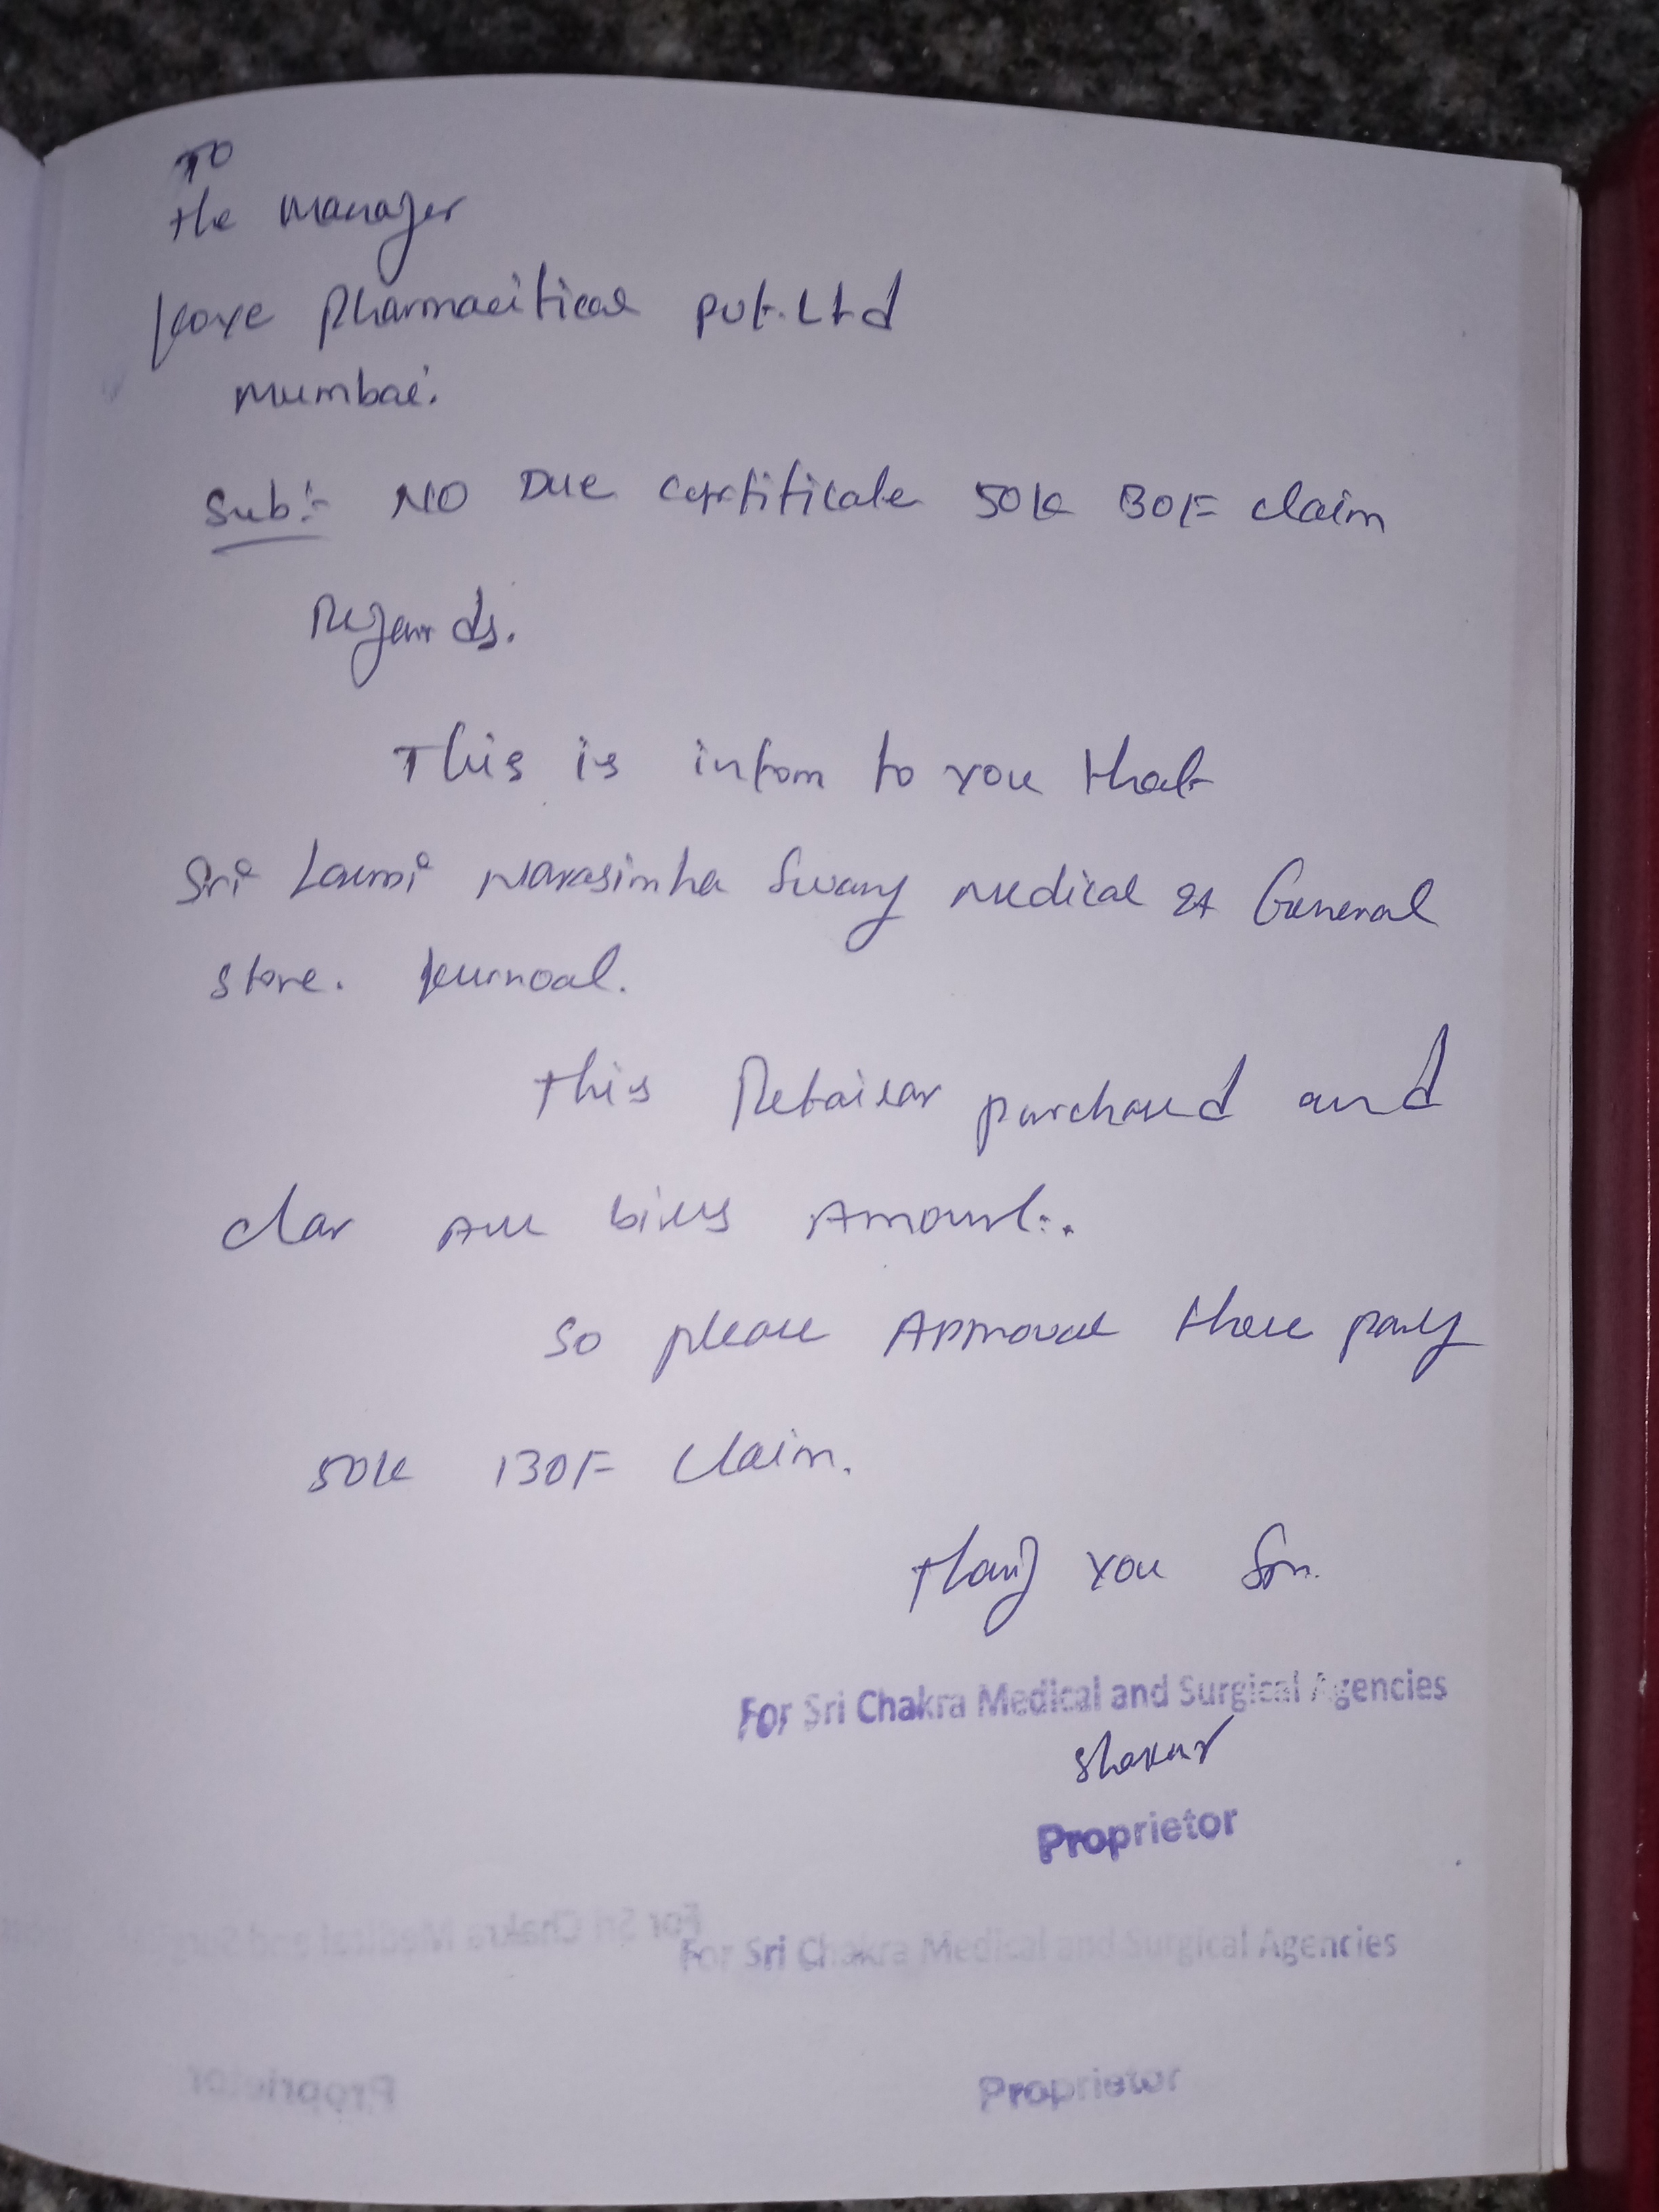 To
the manager
Koye Pharmacitical pvt.Ltd
Mumbai.
Sub:- NO Due certificate 50K BOF claim
Regards.
This is infom to you that
Sri Laxmi Narasimha Swamy Medical & General
Store. Kurnool.
this Retailar purchased and
clar All bills Amount.
so please Approval these party
50K BOF Claim.
Thank you Sir.
For Sri Chakra Medical and Surgical Agencies
Proprietor
For Sri Chakra Medical and Surgical Agencies
For Sri Chakra Medical and Surgical
Proprietor
Proprietor